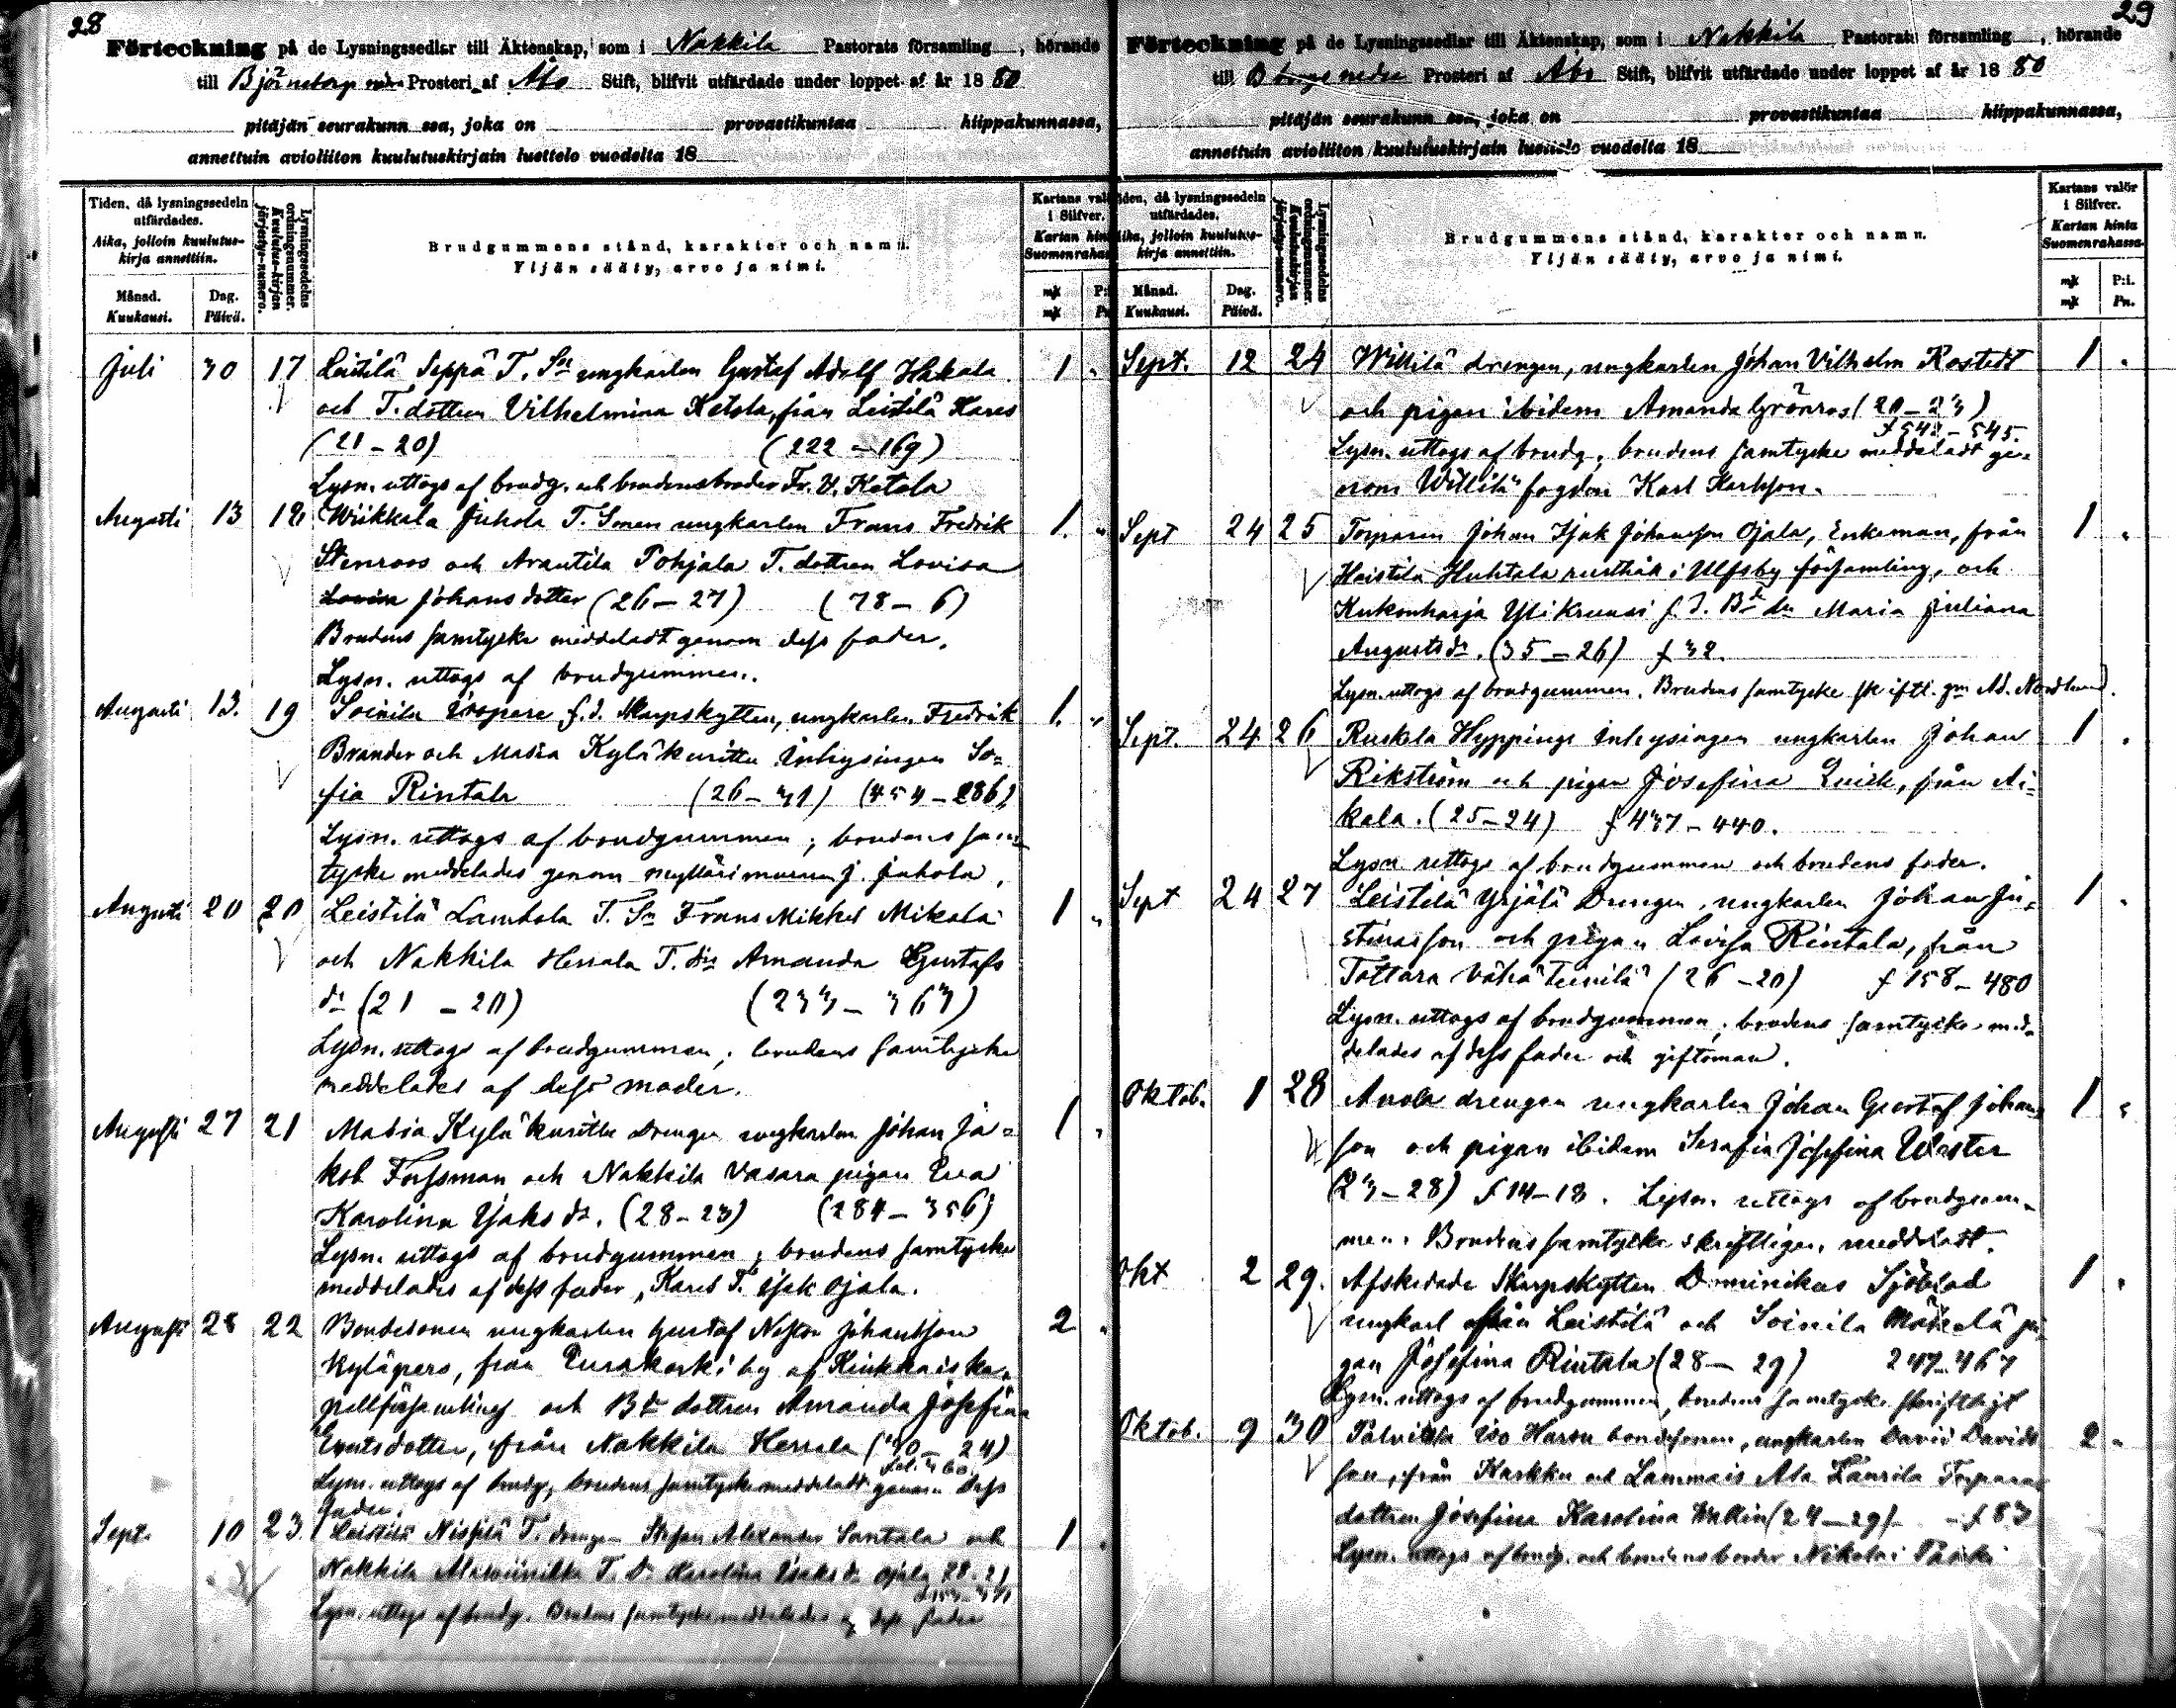 28
Förteckning på de Lysningssedlar till Äktenskap, som i Nakkila Pastorats församling , hörande
till Björneborg nedre Prosteri af Åbo Stift, blifvit utfärdade under loppet af år 1880
pitäjän seurakunn ssa, joka on provastikuntaa hiippakunnassa,
annettuin avioliiton kuulutuskirjain luettelo vuodelta 18
Tiden, då lysningssedeln utfärdades.
Aika, jolloin kuulutus-kirja annettiin.
Månad. Kuukausi.
Dag. Päivä.
Lysningssedelns ordningsnummer.
Kuulutus-kirjan järjestys-numero.
Brudgummens stånd, karakter och namn.
Yljän sääty, arvo ja nimi.
Kartans valör i Silfver.
Kartan hinta Suomenrahassa
mk P:i
mk Pn
Juli 30 17 Leistilä Seppä T. Sn ungkarlen Gustaf Adolf Hakala 1 "
och T. dottren Vilhelmina Ketola, från Leistilä Kares
(21-20) (222-169)
Lysn. uttogs af brudg. och brudens broder Fr. V. Ketola
Augusti 13 18 Wiikkala Juhola T. Sonen ungkarlen Frans Fredrik 1. "
Stenroos och Arantila Pohjala T. dottren Lovisa
Johansdotter (26-27) (78-6)
Brudens samtycke meddeladt genom dess fader.
Lysn. uttogs af brudgummen.
Augusti 13. 19 Soinila Isopere f.d. Skarpskytten, ungkarlen Fredrik 1. "
Brander och Masia Kyläkuritta Inhysingen So=
fia Rintala (26-31) (454-286)
Lysn. uttogs af brudgummen; brudens sam=
tycke meddelades genom J. Juhola.
Augusti 20 20 Leistilä Lambola T. Sn Frans Mikkel Mikola 1 "
och Nakkila Herrala T. dtr Amanda Gustafs
dr (21-20) (233-363)
Lysn. uttogs af brudgummen; brudens samtycke
meddelades af dess moder.
Augusti 27 21 Masia Kyläkuritta Drengen ungkarlen Johan Ja= 1 "
kob Forssman och Nakkila Vasara pigan Eva
Karolina Isaks dr. (28-23) (284-356)
Lysn. uttogs af brudgummen; brudens samtycke
meddelades af dess fader, Kares T. Isak Ojala.
Augusti 28 22 Bondesonen ungkarlen Gustaf Nestor Johansson 2 "
Kyläpere, från Eurakoski by af Kiukkais ka=
pellförsamling och Bde dottren Amanda Josefina
dotter, från Nakkila Herrala (30-24)
Lysn. uttogs af brudg, brudens samtycke meddeladt genom dess
fader.
Sept. 10 23. Leistilä Nissilä T. drengen Stefan Alexander Santala och 1 "
Nakkila T. Dr Karolina Isaks dr Ojala 28-21
Lysn. uttogs af brudg. Brudens samtycke meddelades af dess fader
29
Förteckning på de Lysningssedlar till Äktenskap, som i Nakkila Pastorats församling , hörande
till B borgs nedre Prosteri af Åbo Stift, blifvit utfärdade under loppet af år 1880
pitäjän seurakunn ssa, joka on provastikuntaa hiippakunnassa,
annettuin avioliiton kuulutuskirjain luettelo vuodelta 18
Tiden, då lysningssedeln utfärdades.
Aika, jolloin kuulutus-kirja annettiin.
Månad. Kuukausi.
Dag. Päivä.
Lysningssedelns ordningsnummer.
Kuulutuskirjan järjestys-numero.
Brudgummens stånd, karakter och namn.
Yljän sääty, arvo ja nimi.
Kartans valör i Silfver.
Kartan hinta Suomenrahassa.
mk P:i.
mk Pn.
Sept. 12 24 Willilä drengen, ungkarlen Johan Vilhelm Rostedt 1 "
och pigan ibidem Amanda Grönroos (20-23)
f 542-545.
Lysn. uttogs af brudg, brudens samtycke meddeladt ge=
nom Willilä fogden Karl Karlsson.
Sept 24 25 Torparen Johan Isak Johansson Ojala, Enkeman, från 1 "
Haistila Huhtala rusthåll i Ulfsby församling, och
Kukonharja Yli Kruusi f.d. Bde dr Maria Juliana
Augustsdr. (35-26) f 32.
Lysn. uttogs af brudgummen. Brudens samtycke skriftl. gm Ad. Nordlund.
Sept. 24 26 Ruskela Hyppingi Inhysingen ungkarlen Johan 1 "
Rikström och pigan Josefina Quick, från Ai=
kala. (25-24) f 437-440.
Lysn uttogs af brudgummen och brudens fader.
Sept 24 27 Leistilä Yrjälä Drengen, ungkarlen Johan Ju= 1 "
stinasson och pigan Lovisa Rintala, från
Tattara Vähä Teinilä (26-20) f 158-480
Lysn. uttogs af brudgummen, brudens samtycke med=
delades af dess fader och giftoman.
Oktob. 1 28 Anola drengen ungkarlen Johan Gustaf Johans= 1 "
son och pigan ibidem Serafia Josefina Wester
(23-28) f 14-18. Lysn. uttogs af brudgum=
men. Brudens samtycke skriftligen meddeladt.
Okt 2 29. Afskedade Skarpskytten Dominikus Sjöblad 1 "
ungkarl från Leistilä och Soinila Mäkelä pi=
gan Josefina Rintala (28-29) 247-467
Lysn. uttogs af brudgummen, brudens samtycke skriftligt
Oktob. 9 30 Palvilla Iso Harsu bondesonen, ungkarlen David Davids 2 "
son, från Karkku och Lammais Ala Laurila Torpare
dottren Josefina Karolina Wallin (24-29) - f 83
Lysn. uttogs af brudg. och brudens broder Nikolai